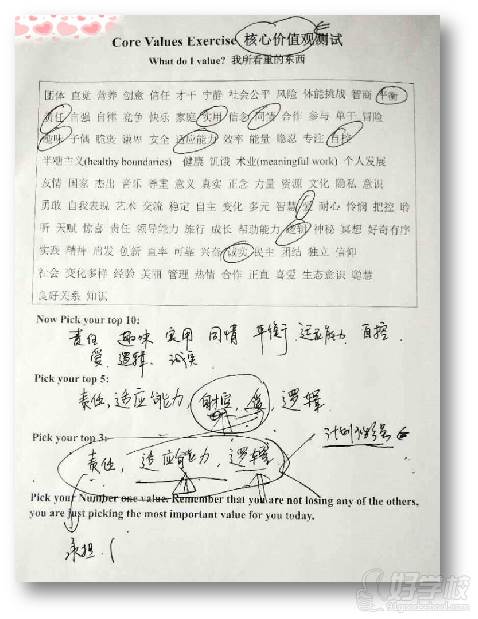 Core Values Exercise 核心价值观测试
What do I value? 我所看重的东西
团体 直觉 营养 创意 信任 才干 宁静 社会公平 风险 体能挑战 智商 平衡
责任 自强 自律 竞争 快乐 家庭 实用 信念 同情 合作 参与 单干 冒险
趣味 子偶 谦卑 安全 适应能力 效率 能量 隐忍 专注 自控
(healthy boundaries) 健康 术业(meaningful work) 个人发展
友情 国家 杰出 音乐 尊重 意义 真实 正念 力量 资源 文化 隐私 意识
勇敢 自我表现 艺术 交流 稳定 自主 变化 多元 智慧 爱 耐心 怜悯 把控 聆
听 天赋 惊喜 责任 领导能力 旅行 成长 帮助能力 逻辑 神秘 冥想 好奇有序
实践 精神 启发 创新 直率 可靠 兴奋 诚实 民主 团结 独立 信仰
社会 变化多样 经验 美丽 管理 热情 合作 正直 喜爱 生态意识 聪慧
良好关系 知识
Now Pick your top 10:
责任 趣味 实用 同情 平衡 适应能力 自控
爱 逻辑 诚实
Pick your top 5:
责任, 适应能力, 自控, 爱, 逻辑
Pick your top 3:
责任, 适应能力, 逻辑
Pick your Number one value. Remember that you are not losing any of the others,
you are just picking the most important value for you today.
承担
好学校
91goodschool.com